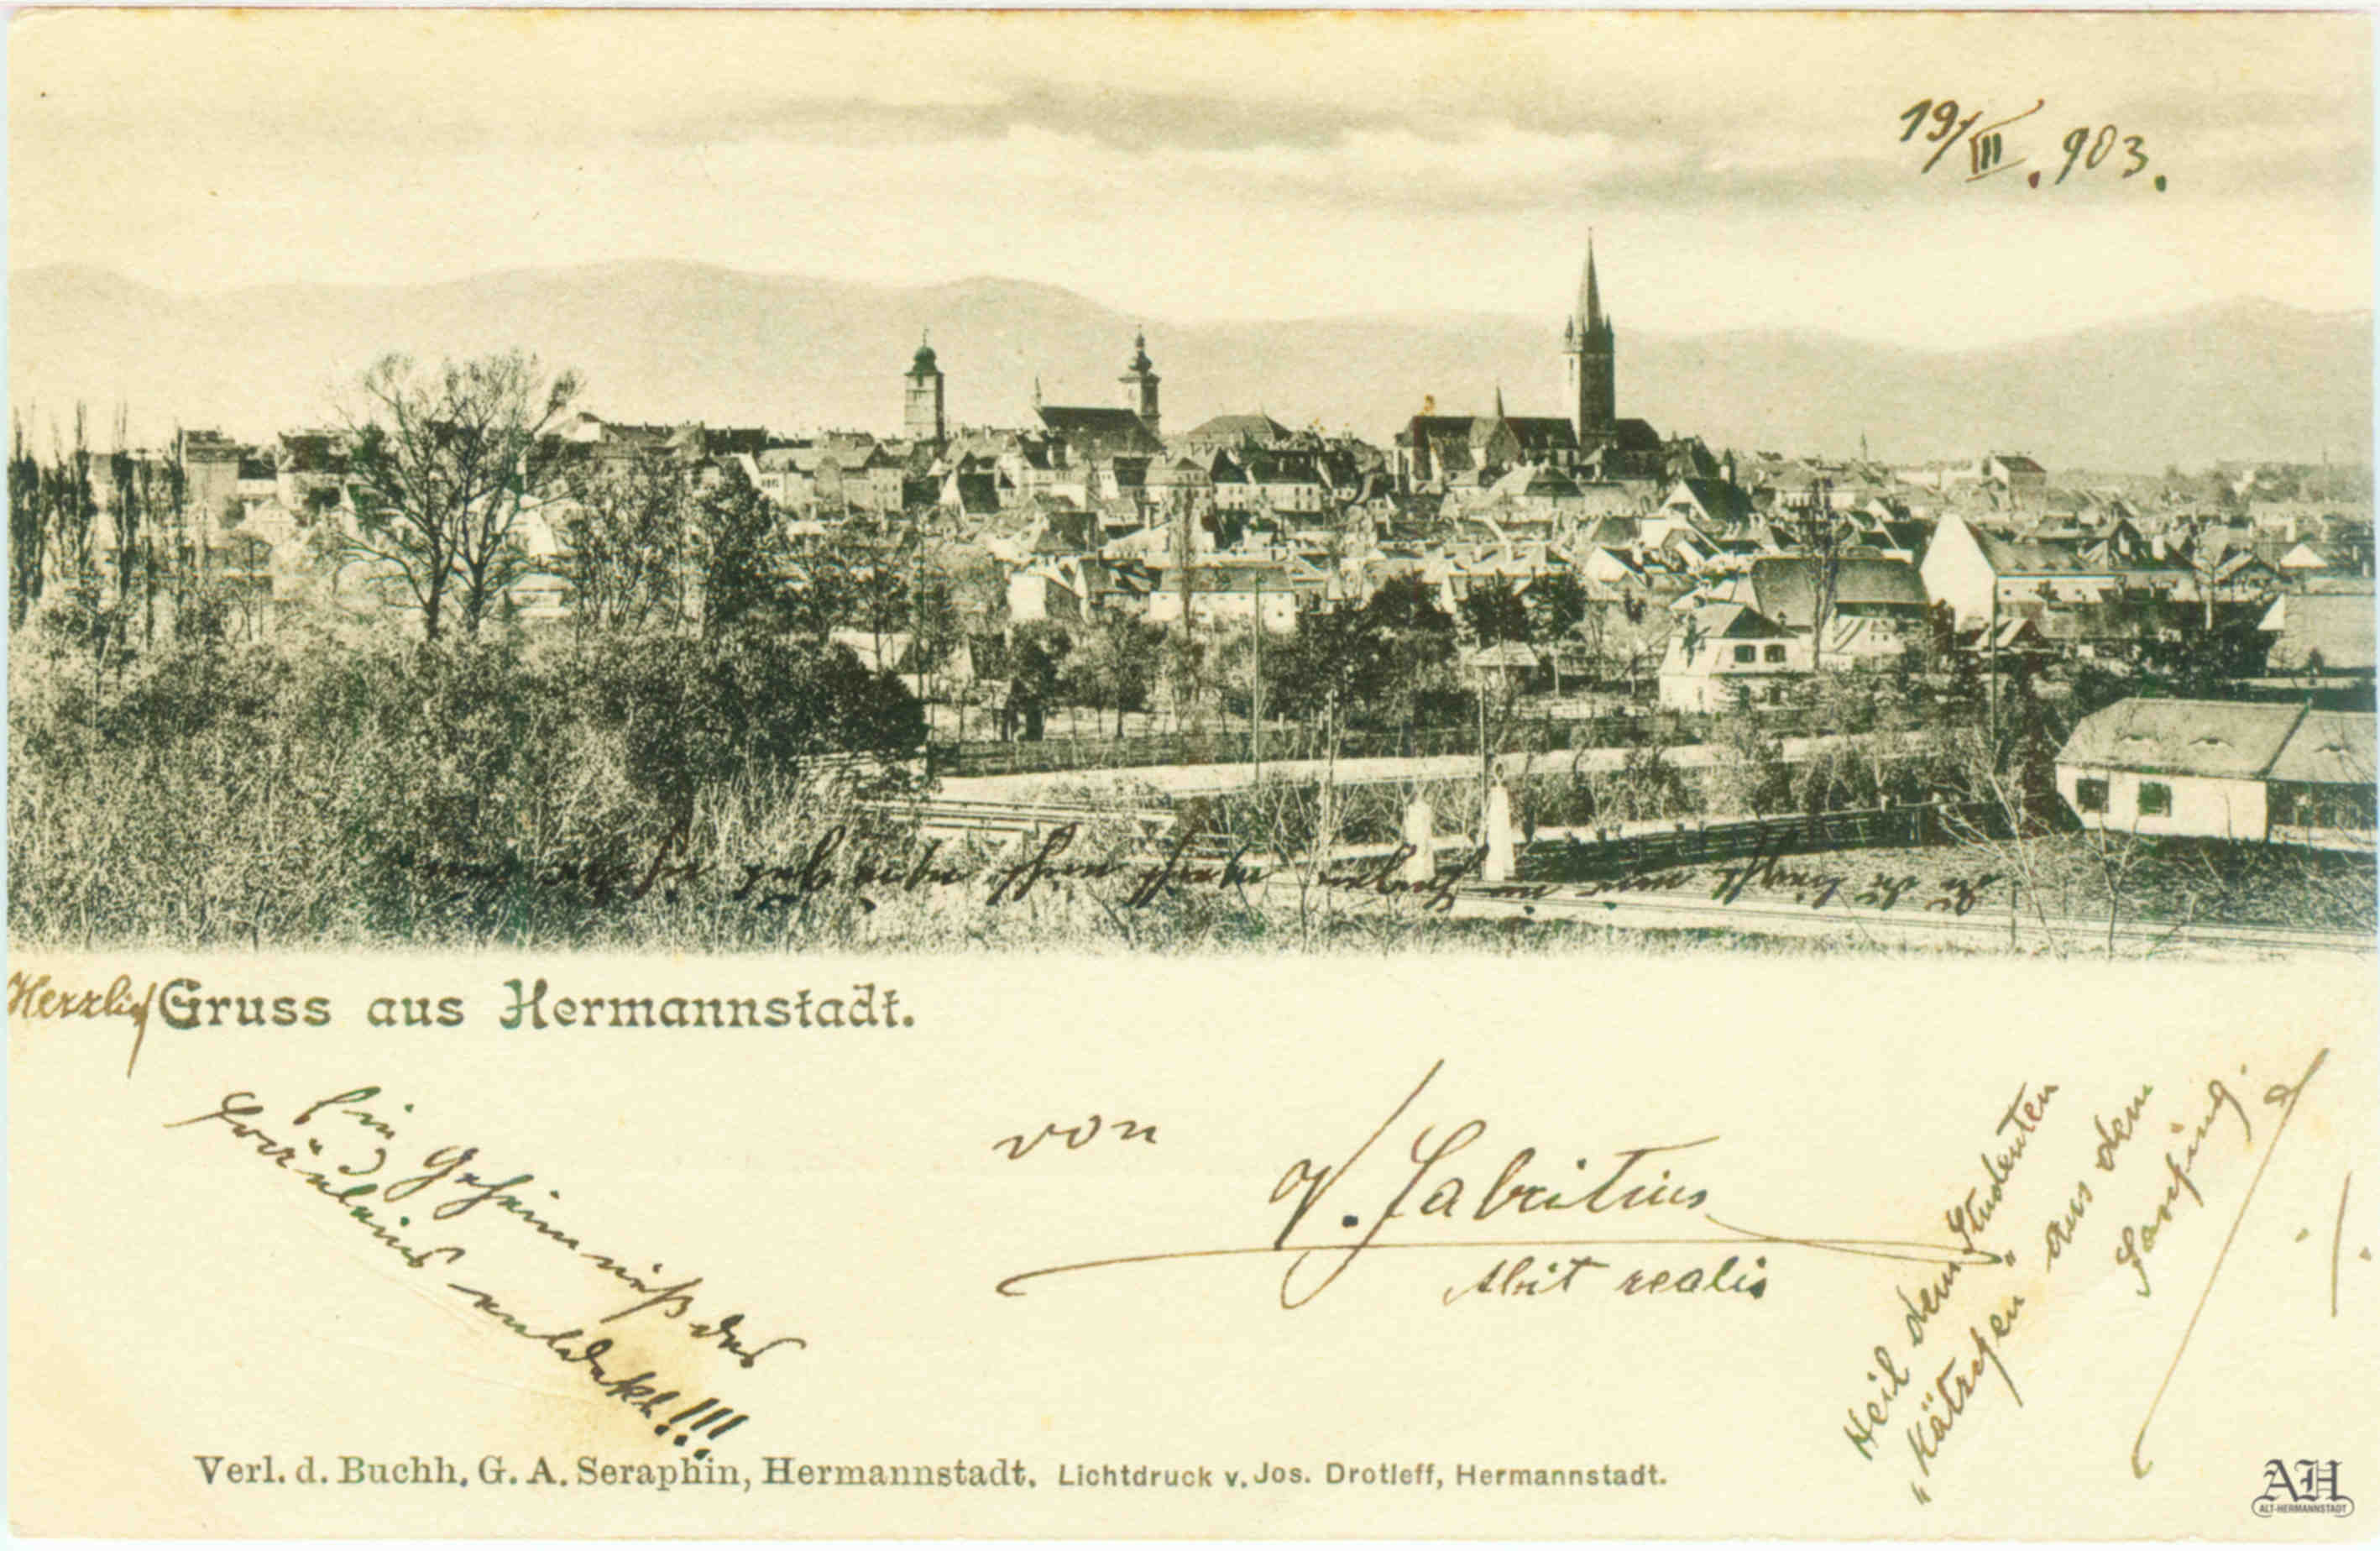 19/III. 903.
Herzlich Gruss aus Hermannstadt.
Ein Geheimniß des
Fräuleins entdeckt!!!
von
V. Fabritius
Abit realis
Heil dem Studenten
"Kätzchen" aus dem
Fasching.
Verl. d. Buchh. G. A. Seraphin, Hermannstadt. Lichtdruck v. Jos. Drotleff, Hermannstadt.
AH
ALT-HERMANNSTADT